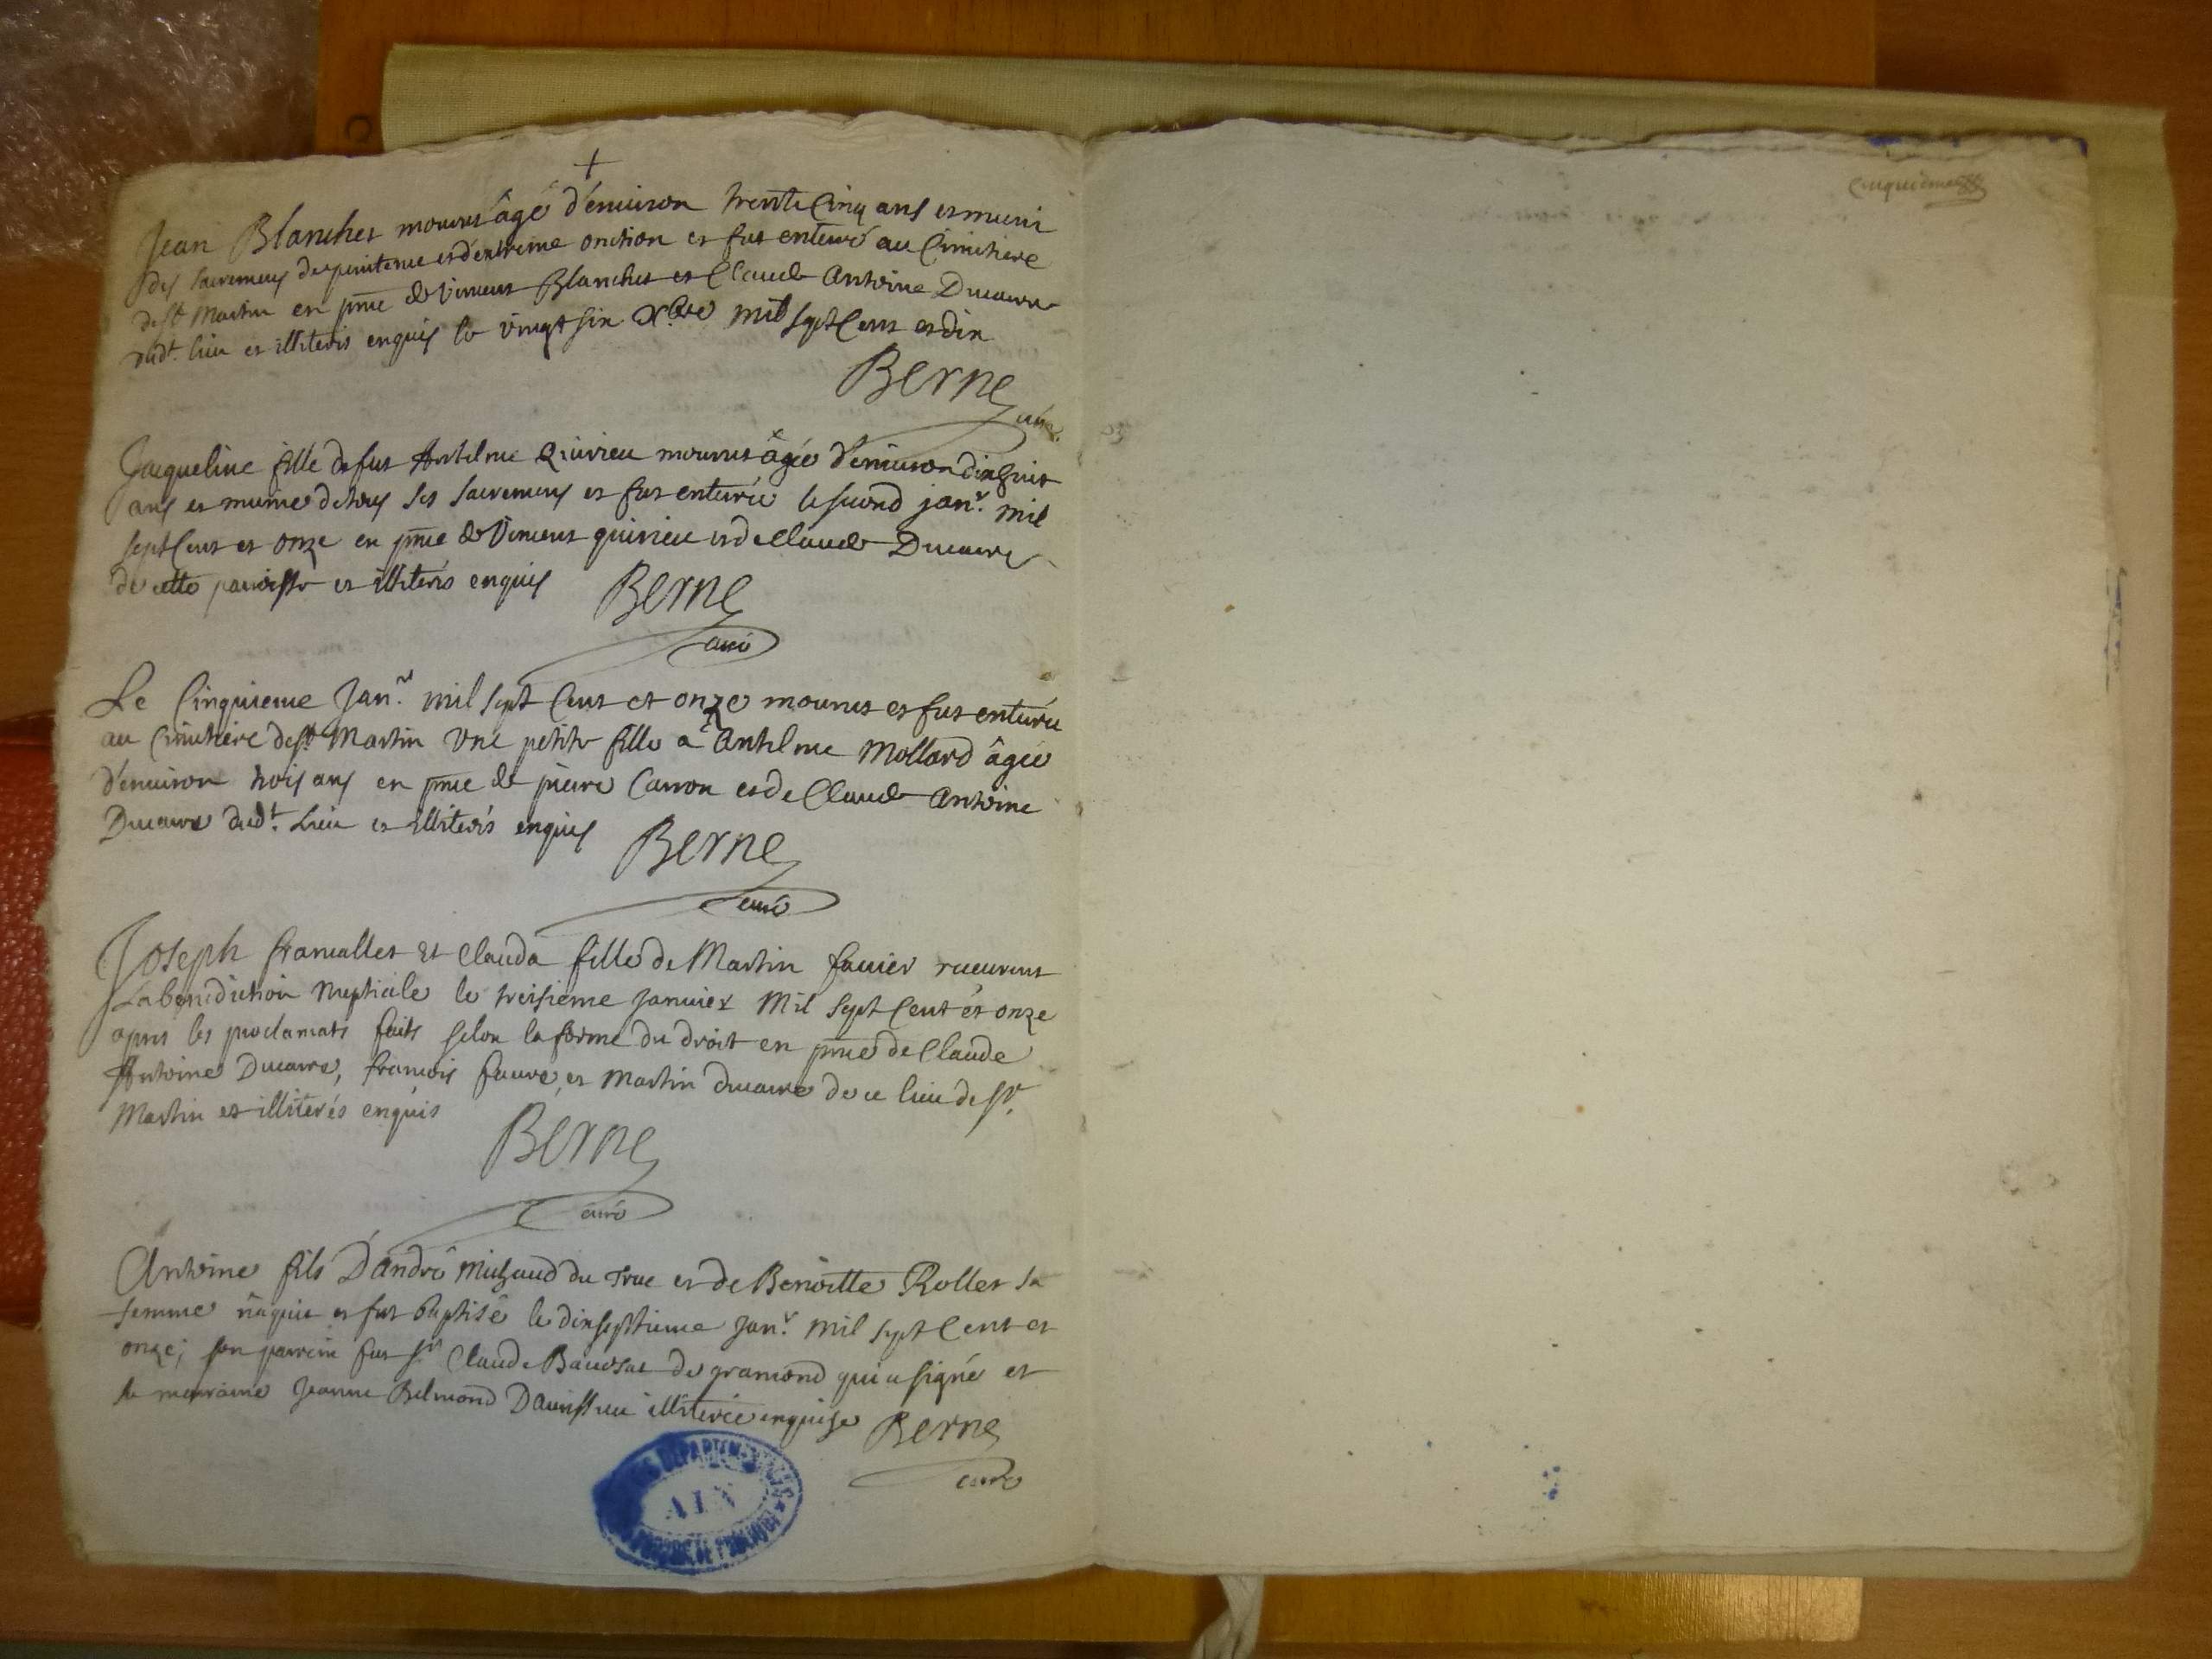 +
Jean Blanchet mourut âgé d'environ trente Cinq ans et muni
des sacremens de penitence et d'extreme onction et fut enterré au Cimitiere
de st Martin en pnce de Vincent Blanchet et Claude Antoine Ducarre
dudt. lieu et illiterés enquis le vingt six Xbre mil sept Cent et dix
Berne
curé
Jacqueline fille de fut Antelme Quivieu mourut âgée d'environ dixhuit
ans et munie de tous ses sacremens et fut enterée le second janr. mil
sept Cent et onze en pnce de Vincent quivieu et de Claude Ducarre
de cette paroisse et illiterés enquis
Berne
curé
Le Cinquieme Janr. mil sept Cent et onze mourut et fut enterée
au Cimitiere de st Martin Une petite fille a Antelme Mollard âgée
d'environ trois ans en pnce de pierre Carron et de Claude Antoine
Ducarre dudt. Lieu et illiterés enquis
Berne
curé
Joseph francallet Et Clauda fille de Martin favier receurent
La benediction Nuptiale le treisieme Janvier Mil Sept Cent et onze
apres les proclamats faits selon la forme du droit en pnce de Claude
Antoine Ducarre, francois favre, et Martin ducarre de ce lieu de st.
Martin et illiterés enquis
Berne
curé
Antoine fils D'andré Michaud du Truc et de Benoitte Rollet sa
femme nâquit et fut baptisé le dixseptieme Janr. mil sept Cent et
onze; son parrein fut sr Claude de gramond qui a signé et
la marraine Jeanne Belmond illiterée enquise
Berne
curé
ARCHIVES DÉPARTEMENTALES
AIN
cinquieme